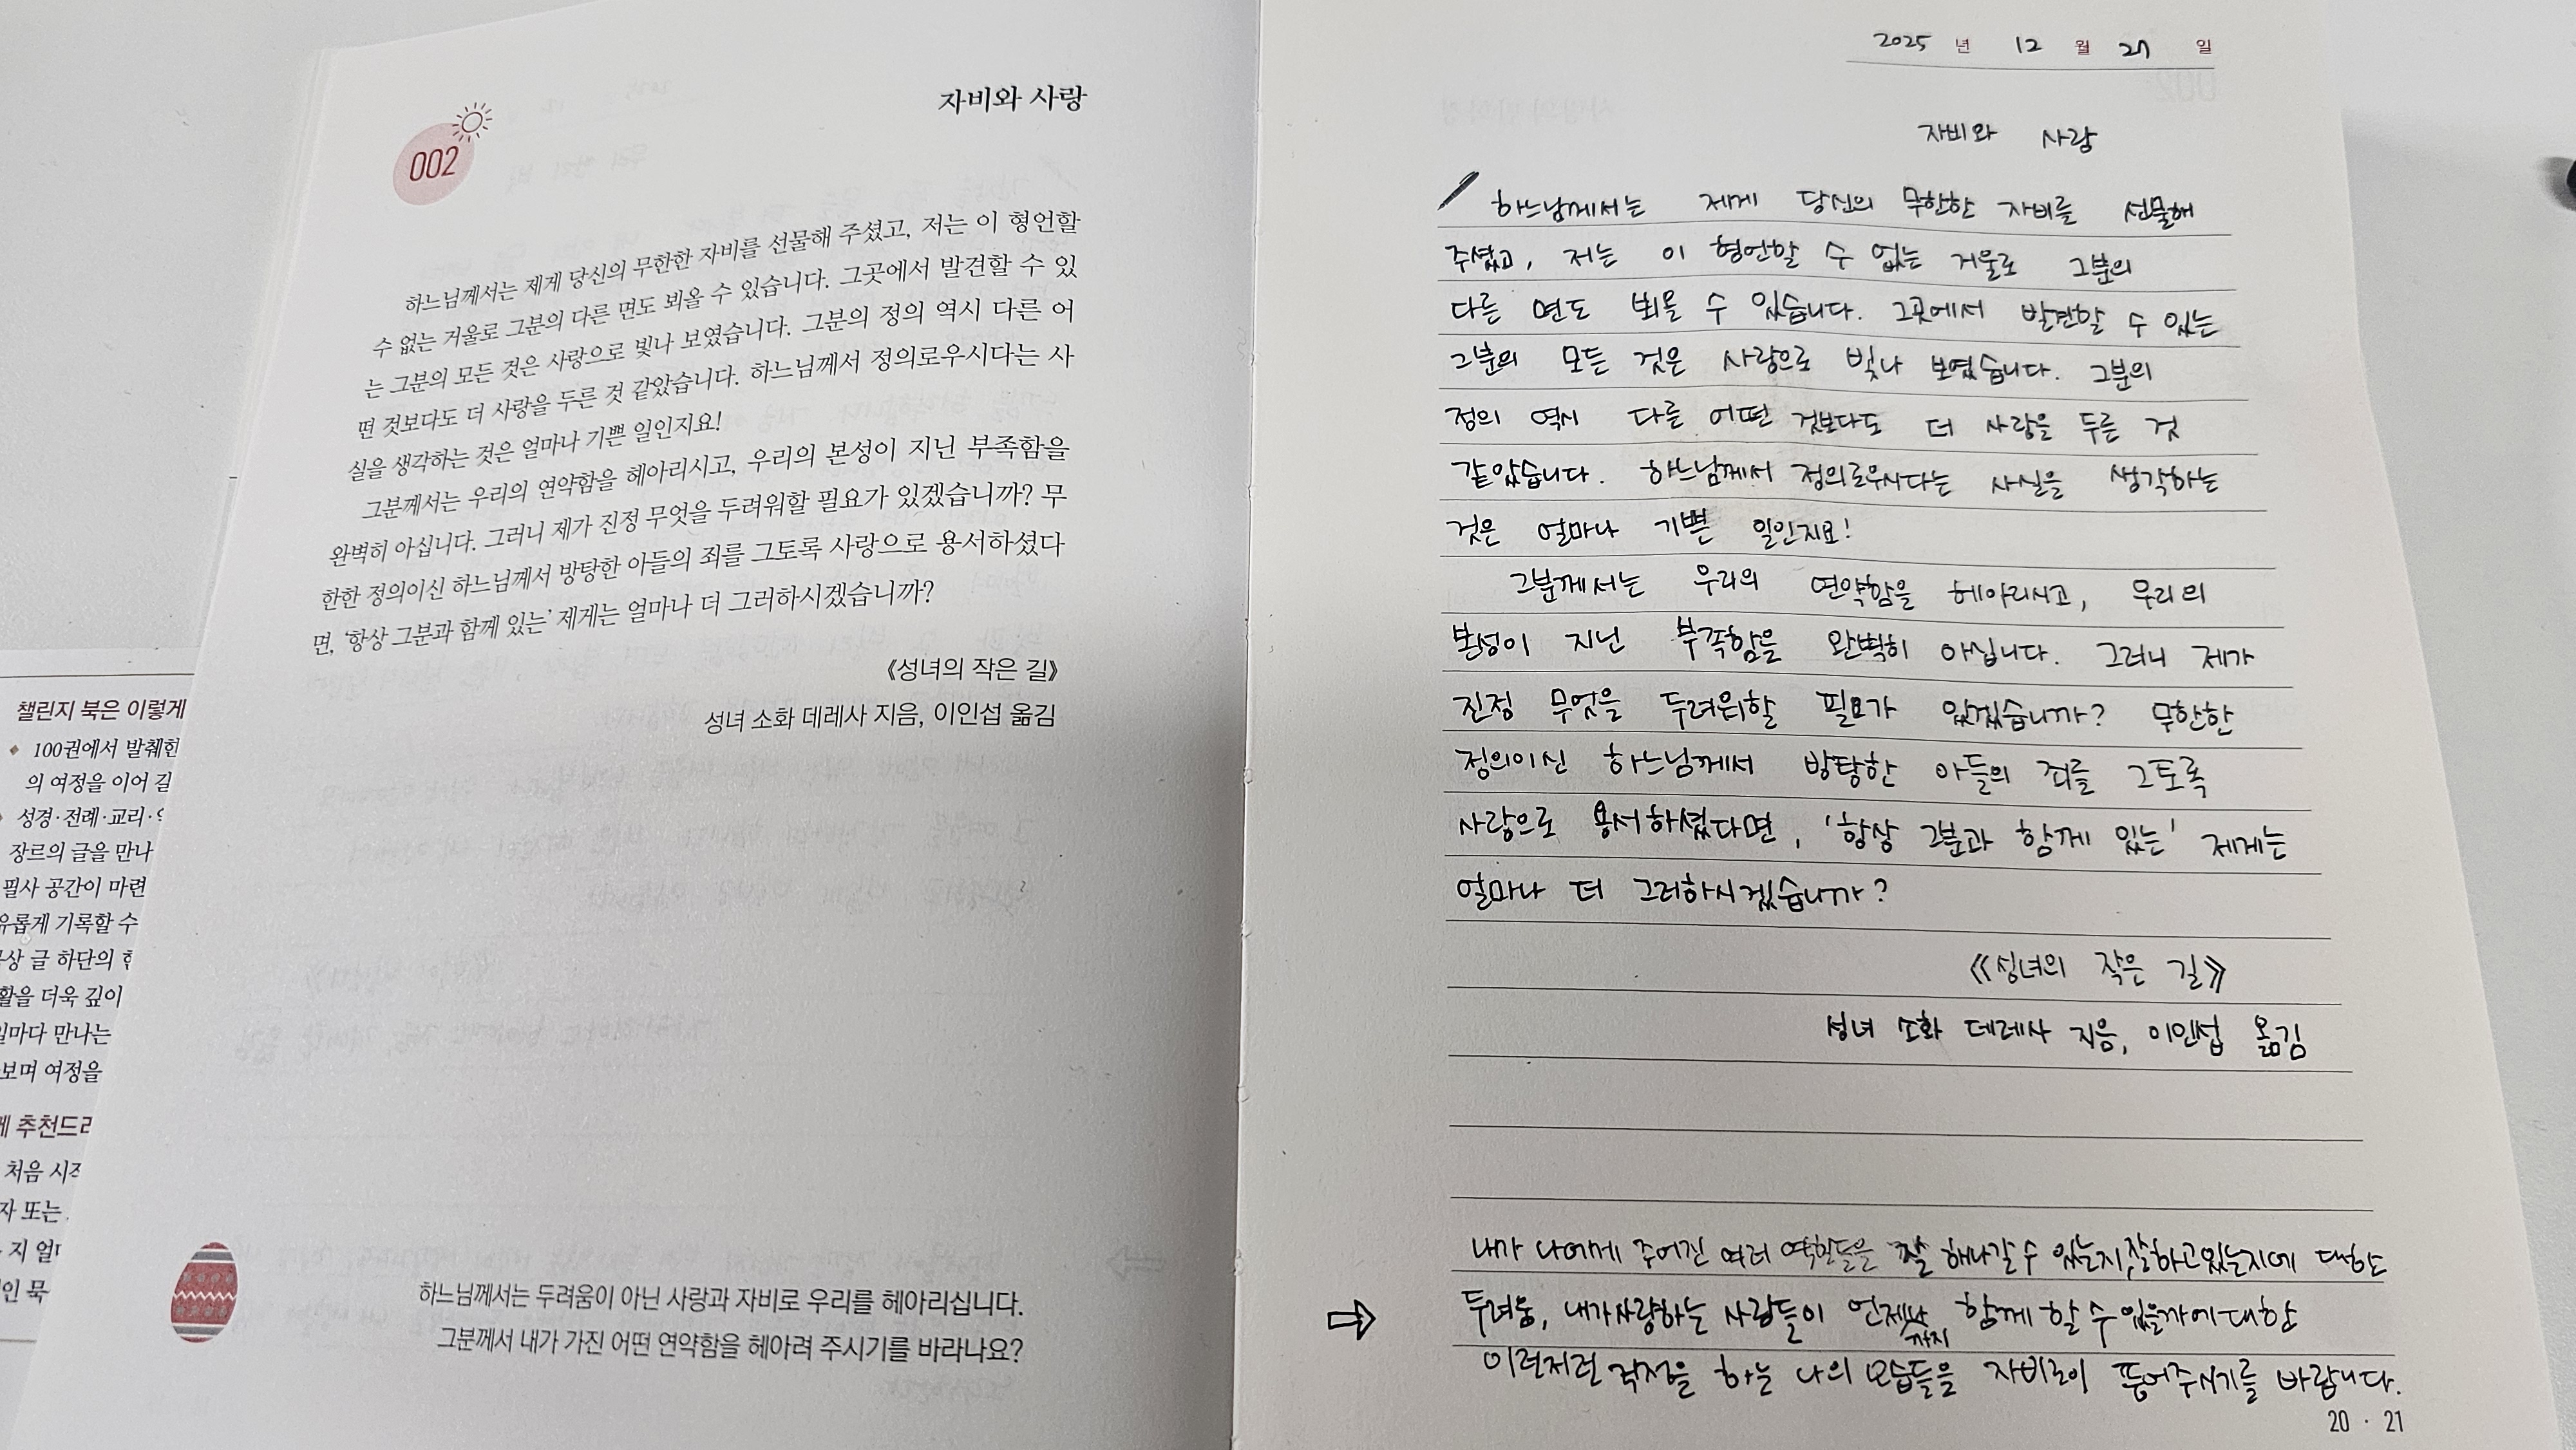 002
자비와 사랑
하느님께서는 제게 당신의 무한한 자비를 선물해 주셨고, 저는 이 형언할
수 없는 거울로 그분의 다른 면도 뵈올 수 있습니다. 그곳에서 발견할 수 있
는 그분의 모든 것은 사랑으로 빛나 보였습니다. 그분의 정의 역시 다른 어
떤 것보다도 더 사랑을 두른 것 같았습니다. 하느님께서 정의로우시다는 사
실을 생각하는 것은 얼마나 기쁜 일인지요!
그분께서는 우리의 연약함을 헤아리시고, 우리의 본성이 지닌 부족함을
완벽히 아십니다. 그러니 제가 진정 무엇을 두려워할 필요가 있겠습니까? 무
한한 정의이신 하느님께서 방탕한 아들의 죄를 그토록 사랑으로 용서하셨다
면, ‘항상 그분과 함께 있는’ 제게는 얼마나 더 그러하시겠습니까?
《성녀의 작은 길》
성녀 소화 데레사 지음, 이인섭 옮김
하느님께서는 두려움이 아닌 사랑과 자비로 우리를 헤아리십니다.
그분께서 내가 가진 어떤 연약함을 헤아려 주시기를 바라나요?
챌린지 북은 이렇게
100권에서 발췌한
의 여정을 이어 길
성경·전례·교리·
장르의 글을 만나
필사 공간이 마련
유롭게 기록할 수
상 글 하단의
활을 더욱 깊이
일마다 만나는
보며 여정을
께 추천드
처음 시작
자 또는
지 얼
인 묵
2025 년 12 월 27 일
자비와 사랑
하느님께서는 제게 당신의 무한한 자비를 선물해
주셨고, 저는 이 형언할 수 없는 거울로 그분의
다른 면도 뵈올 수 있습니다. 그곳에서 발견할 수 있는
그분의 모든 것은 사랑으로 빛나 보였습니다. 그분의
정의 역시 다른 어떤 것보다도 더 사랑을 두른 것
같았습니다. 하느님께서 정의로우시다는 사실을 생각하는
것은 얼마나 기쁜 일인지요!
그분께서는 우리의 연약함을 헤아리시고, 우리의
본성이 지닌 부족함을 완벽히 아십니다. 그러니 제가
진정 무엇을 두려워할 필요가 있겠습니까? 무한한
정의이신 하느님께서 방탕한 아들의 죄를 그토록
사랑으로 용서하셨다면, '항상 그분과 함께 있는' 제게는
얼마나 더 그러하시겠습니까?
《성녀의 작은 길》
성녀 소화 데레사 지음, 이인섭 옮김
내가 나에게 주어진 여러 역할들을 잘 해나갈 수 있는지, 잘하고있는지에 대한
두려움, 내가 사랑하는 사람들이 언제까지 함께 할 수 있을까에 대한
이런저런 걱정을 하는 나의 모습들을 자비로이 품어주시기를 바랍니다.
20 · 21